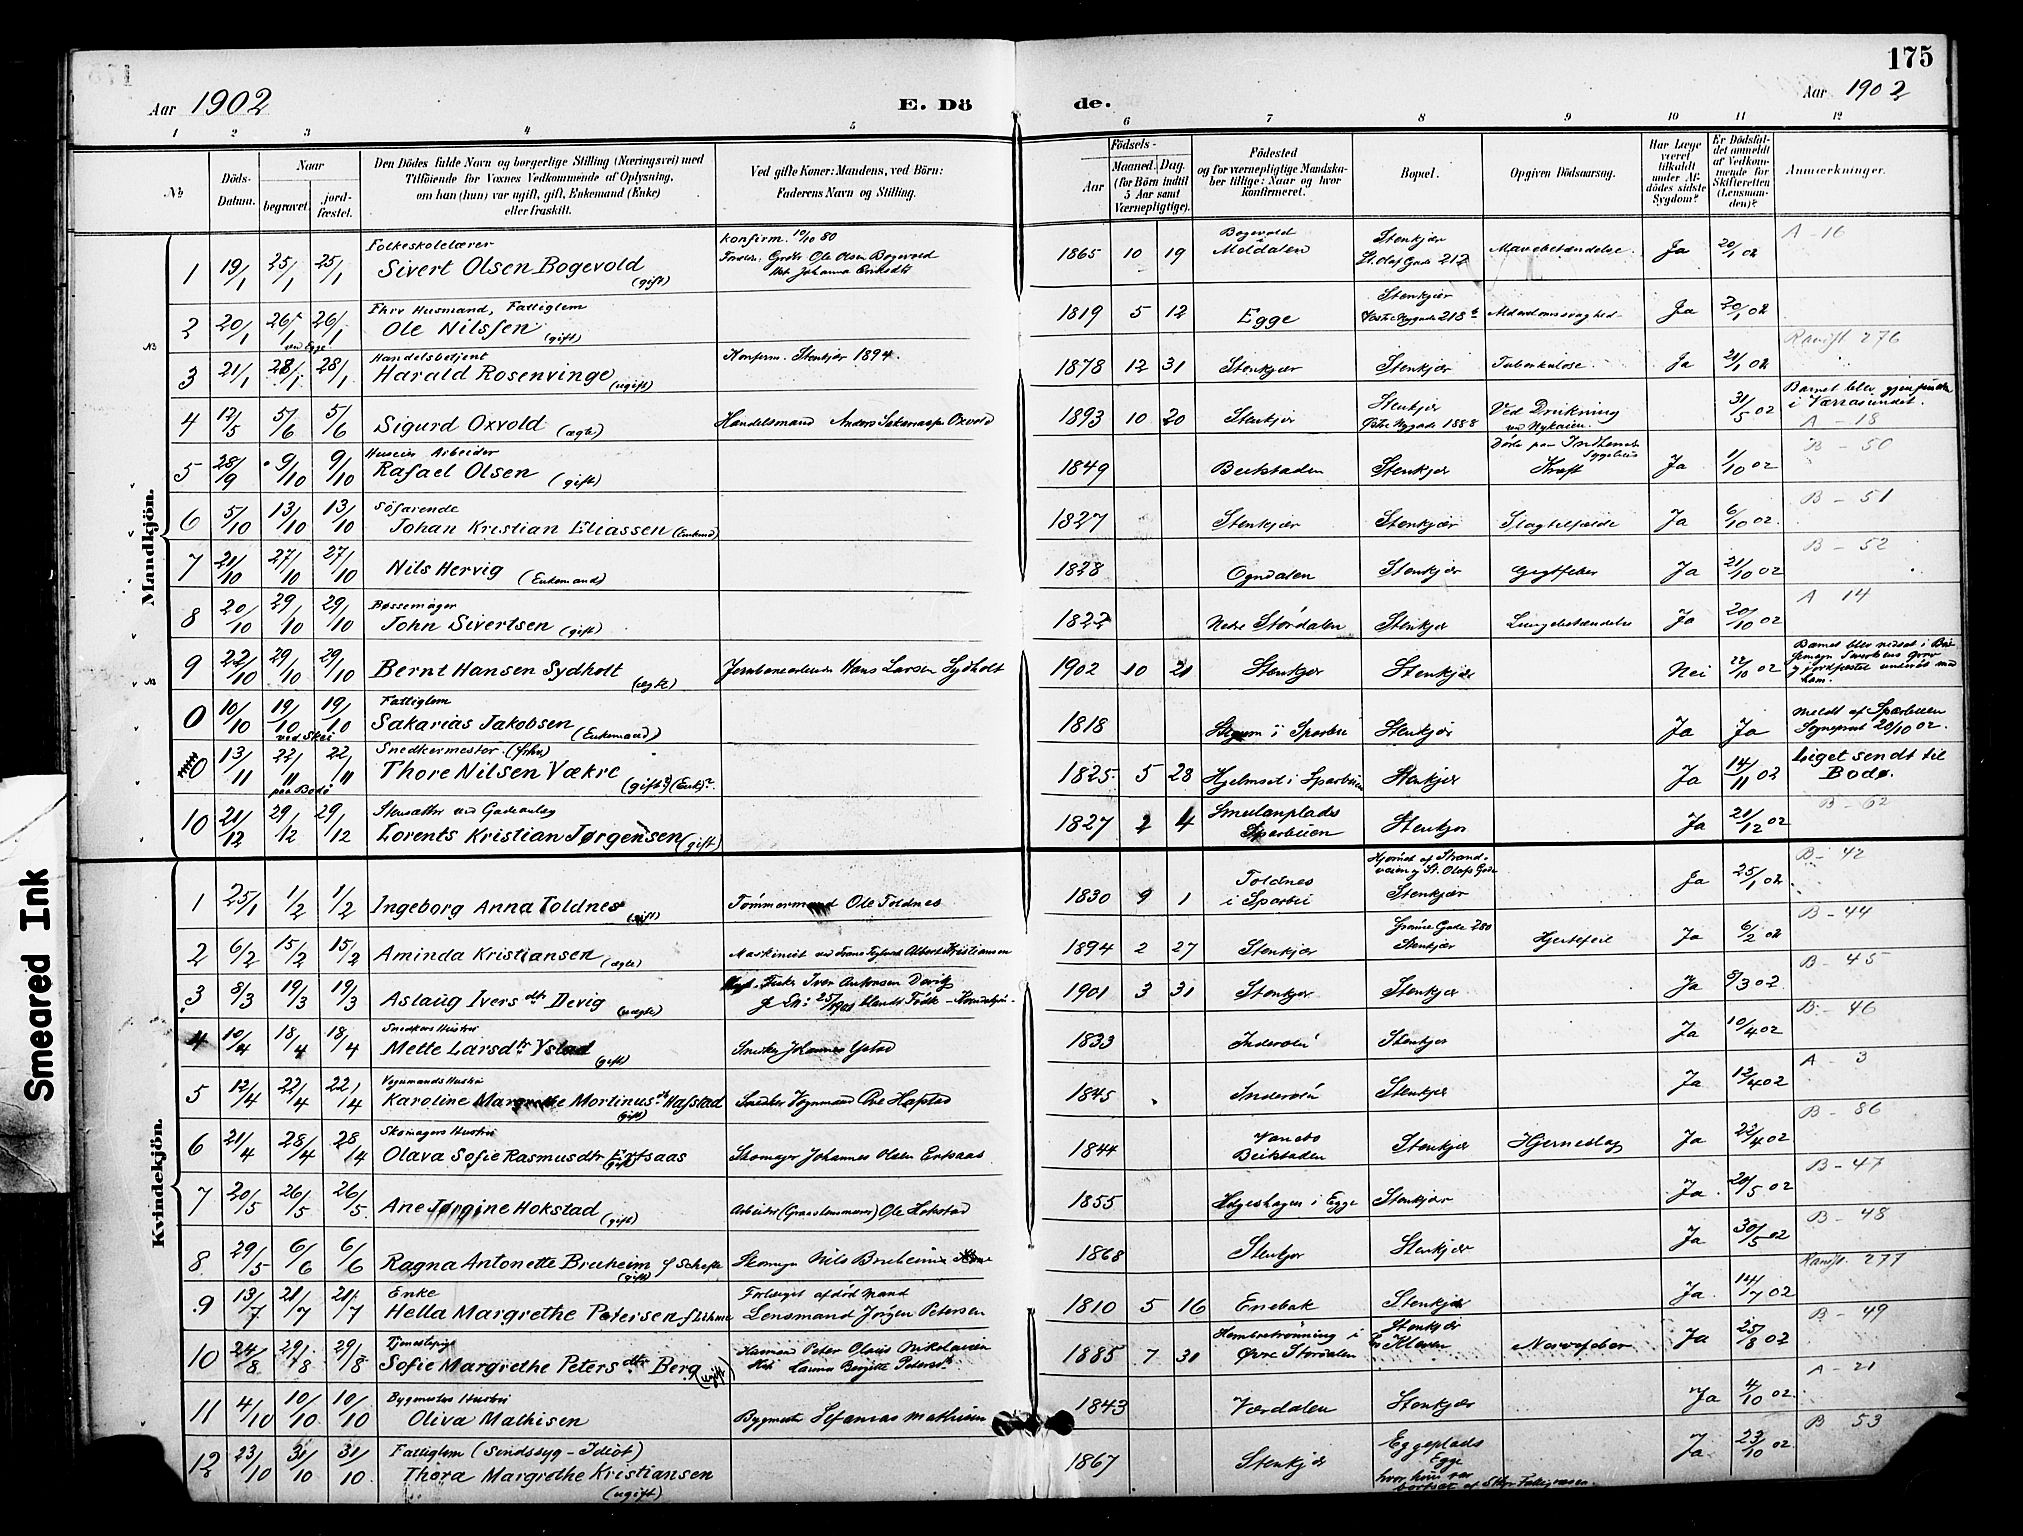 175
Aar 1902
E. Dö
de.
Aar 1902
1 2 3 4 5 6 7 8 9 10 11 12
No
Döds-Datum.
Naar
begravet.
jord-fæstet.
Den Dödes fulde Navn og borgerlige Stilling (Næringsvei) med
Tilföiende for Voxnes Vedkommende af Oplysning,
om han (hun) var ugift, gift, Enkemand (Enke)
eller fraskilt.
Ved gifte Koner: Mandens, ved Börn:
Faderens Navn og Stilling.
Födsels-
Aar
Maaned. Dag.
(for Börn indtil
5 Aar samt
Værnepligtige).
Födested
og for værnepligtige Mandska-
ber tillige: Naar og hvor
konfirmeret.
Bopæl.
Opgiven Dödsaarsag.
Har Læge
været
tilkaldt
under Af-
dödes sidste
Sygdom?
Er Dödsfal-
det anmeldt
af Vedkom-
mende for
Skifteretten
(Lensman-
den)?
Anmerkninger.
Mandkjön.
Folkeskolelærer
1 19/1 25/1 25/1 Sivert Olsen Bogevold (gift) konfirm. 10/10 80 Ole Olsen Bogevold Johanna 1865 10 19 Bogevold Meldalen Stenkjær St. Olaf Gade 212 Mavebetændelse Ja 20/1 02 A - 16
Fhv Husmand, Fattiglem
2 20/1 26/1 26/1 ved Egge Ole Nilssen (gift) 1819 5 12 Egge Stenkjær Alderdomssvaghed Ja 20/1 02
Handelsbetjent
3 21/1 28/1 28/1 Harald Rosenvinge (ugift) Konfirm. Stenkjær 1894. 1878 12 31 Stenkjær Stenkjær Tuberkulose Ja 21/1 02 276
4 17/5 5/6 5/6 Sigurd Oxvold (ægte) Handelsmand Anders Oxvold 1893 10 20 Stenkjær Stenkjær Ved Drukning ved Nykaien. 31/5 02 Barnet blev gjenfunden i Værrasundet. A - 18
Arbeider
5 28/9 9/10 9/10 Rafael Olsen (gift) 1849 Beitstaden Stenkjær Døde paa Sygehus Kræft Ja 1/10 02 B - 50
Söfarende
6 5/10 13/10 13/10 Johan Kristian Eliassen (Enkemd) 1827 Stenkjær Stenkjær Slagtilfælde Ja 6/10 02 B - 51
7 21/10 27/10 27/10 Nils Hervig (Enkemand) 1828 Ogndalen Stenkjær Gigtfeber Ja 21/10 02 B - 52
Bøssemager
8 20/10 29/10 29/10 John Sivertsen (gift) 1822 Nedre Stördalen Stenkjær Lungebetændelse Ja 20/10 02 A 14
9 22/10 29/10 29/10 Bernt Hansen Sydholt (ægte) Jernbanearbeider Hans Larsen Sydholt 1902 10 21 Stenkjær Stenkjær Nei 22/10 02 Barnet blev nedsat i
Fattiglem
0 10/10 19/10 19/10 ved Skei Sakarias Jakobsen (Enkemand) 1818 i Sparbu Stenkjær Ja Ja meldt af Sparbuen Sogneprst 20/10 02.
Snedkermester (frhn)
0 13/11 22/11 22/11 paa Bodø Thore Nilsen Vækre (gift?) (Enk)? 1825 5 28 Hjelmset i Sparbuen Stenkjær Ja 14/11 02 Liget sendt til Bodø.
ved Gadeanlæg
10 21/12 29/12 29/12 Lorents Kristian Jørgensen (gift) 1827 2 4 Sparbuen Stenkjær Ja 21/12 02 B - 62
Kvindekjön.
1 25/1 1/2 1/2 Ingeborg Anna Toldnes (gift) Tømmermand Ole Toldnes 1830 9 1 Toldnes i Sparbu Hjørnet af Strandveien og St. Olafs Gade Stenkjær Ja 25/1 02 B - 42
2 6/2 15/2 15/2 Aminda Kristiansen (ægte) Maskinist ved Albert Kristiansen 1894 2 27 Stenkjær Grønne Gade 280 Stenkjær Hjertefeil Ja 6/2 02 B - 44
3 8/3 19/3 19/3 Aslaug Ivers dtr Devig (uægte) Iver Antonsen Devig 1901 3 31 Stenkjær Stenkjær Ja 8/3 02 B - 45
Snedkers Hustru
4 10/4 18/4 18/4 Mette Larsdtr Ystad (gift) Snedker Johannes Ystad 1833 Inderøen Stenkjær Ja 10/4 02 B - 46
Vognmands Hustru
5 12/4 22/4 22/4 Karoline Margrethe Mortinusdtr Hafstad (gift) Snedker Vognmand Ole Hafstad 1845 Inderøen Stenkjær Ja 12/4 02 A - 3
Skomagers Hustru
6 21/4 28/4 28/4 Olava Sofie Rasmusdtr Ertsaas (gift) Skomager Johannes Olsen Ertsaas 1844 Beitstaden Stenkjær Hjerneslag Ja 22/4 02 B - 86
7 20/5 26/5 26/5 Ane Jørgine Hokstad (gift) Arbeider Ole Hokstad 1855 Helgeshagen i Egge Stenkjær Ja 20/5 02 B - 47
8 29/5 6/6 6/6 Ragna Antonette Bruheim (gift) Skomager Nils Bruheim 1868 Stenkjær Stenkjær Ja 30/5 02 B - 48
Enke
9 13/7 21/7 21/7 Hella Margrethe Petersen f Lihme Forlængst afdød Mand Lensmand Jørgen Petersen 1810 5 16 Enebak Stenkjær Ja 14/7 02 277
Tjenestepige
10 24/8 29/8 29/8 Sofie Margrethe Peters dtr Berg (ugift) Husmand Peter Olaus Nikolaisen Laura Bergitte 1885 7 31 i Øvre Stordalen Stenkjær Nervefeber Ja 25/8 02 B - 49
Bygmesters Hustru
11 4/10 10/10 10/10 Oliva Mathisen Bygmester Sefanias Mathisen 1843 Værdalen Stenkjær Ja 4/10 02 A - 21
Fattiglem (Sindssyg - Idiot)
12 23/10 31/10 31/10 Thora Margrethe Kristiansen (ugift) 1867 Stenkjær Eggeplads Egge hvor hun var bortsat af Ja 23/10 02 B 53
Smeared Ink